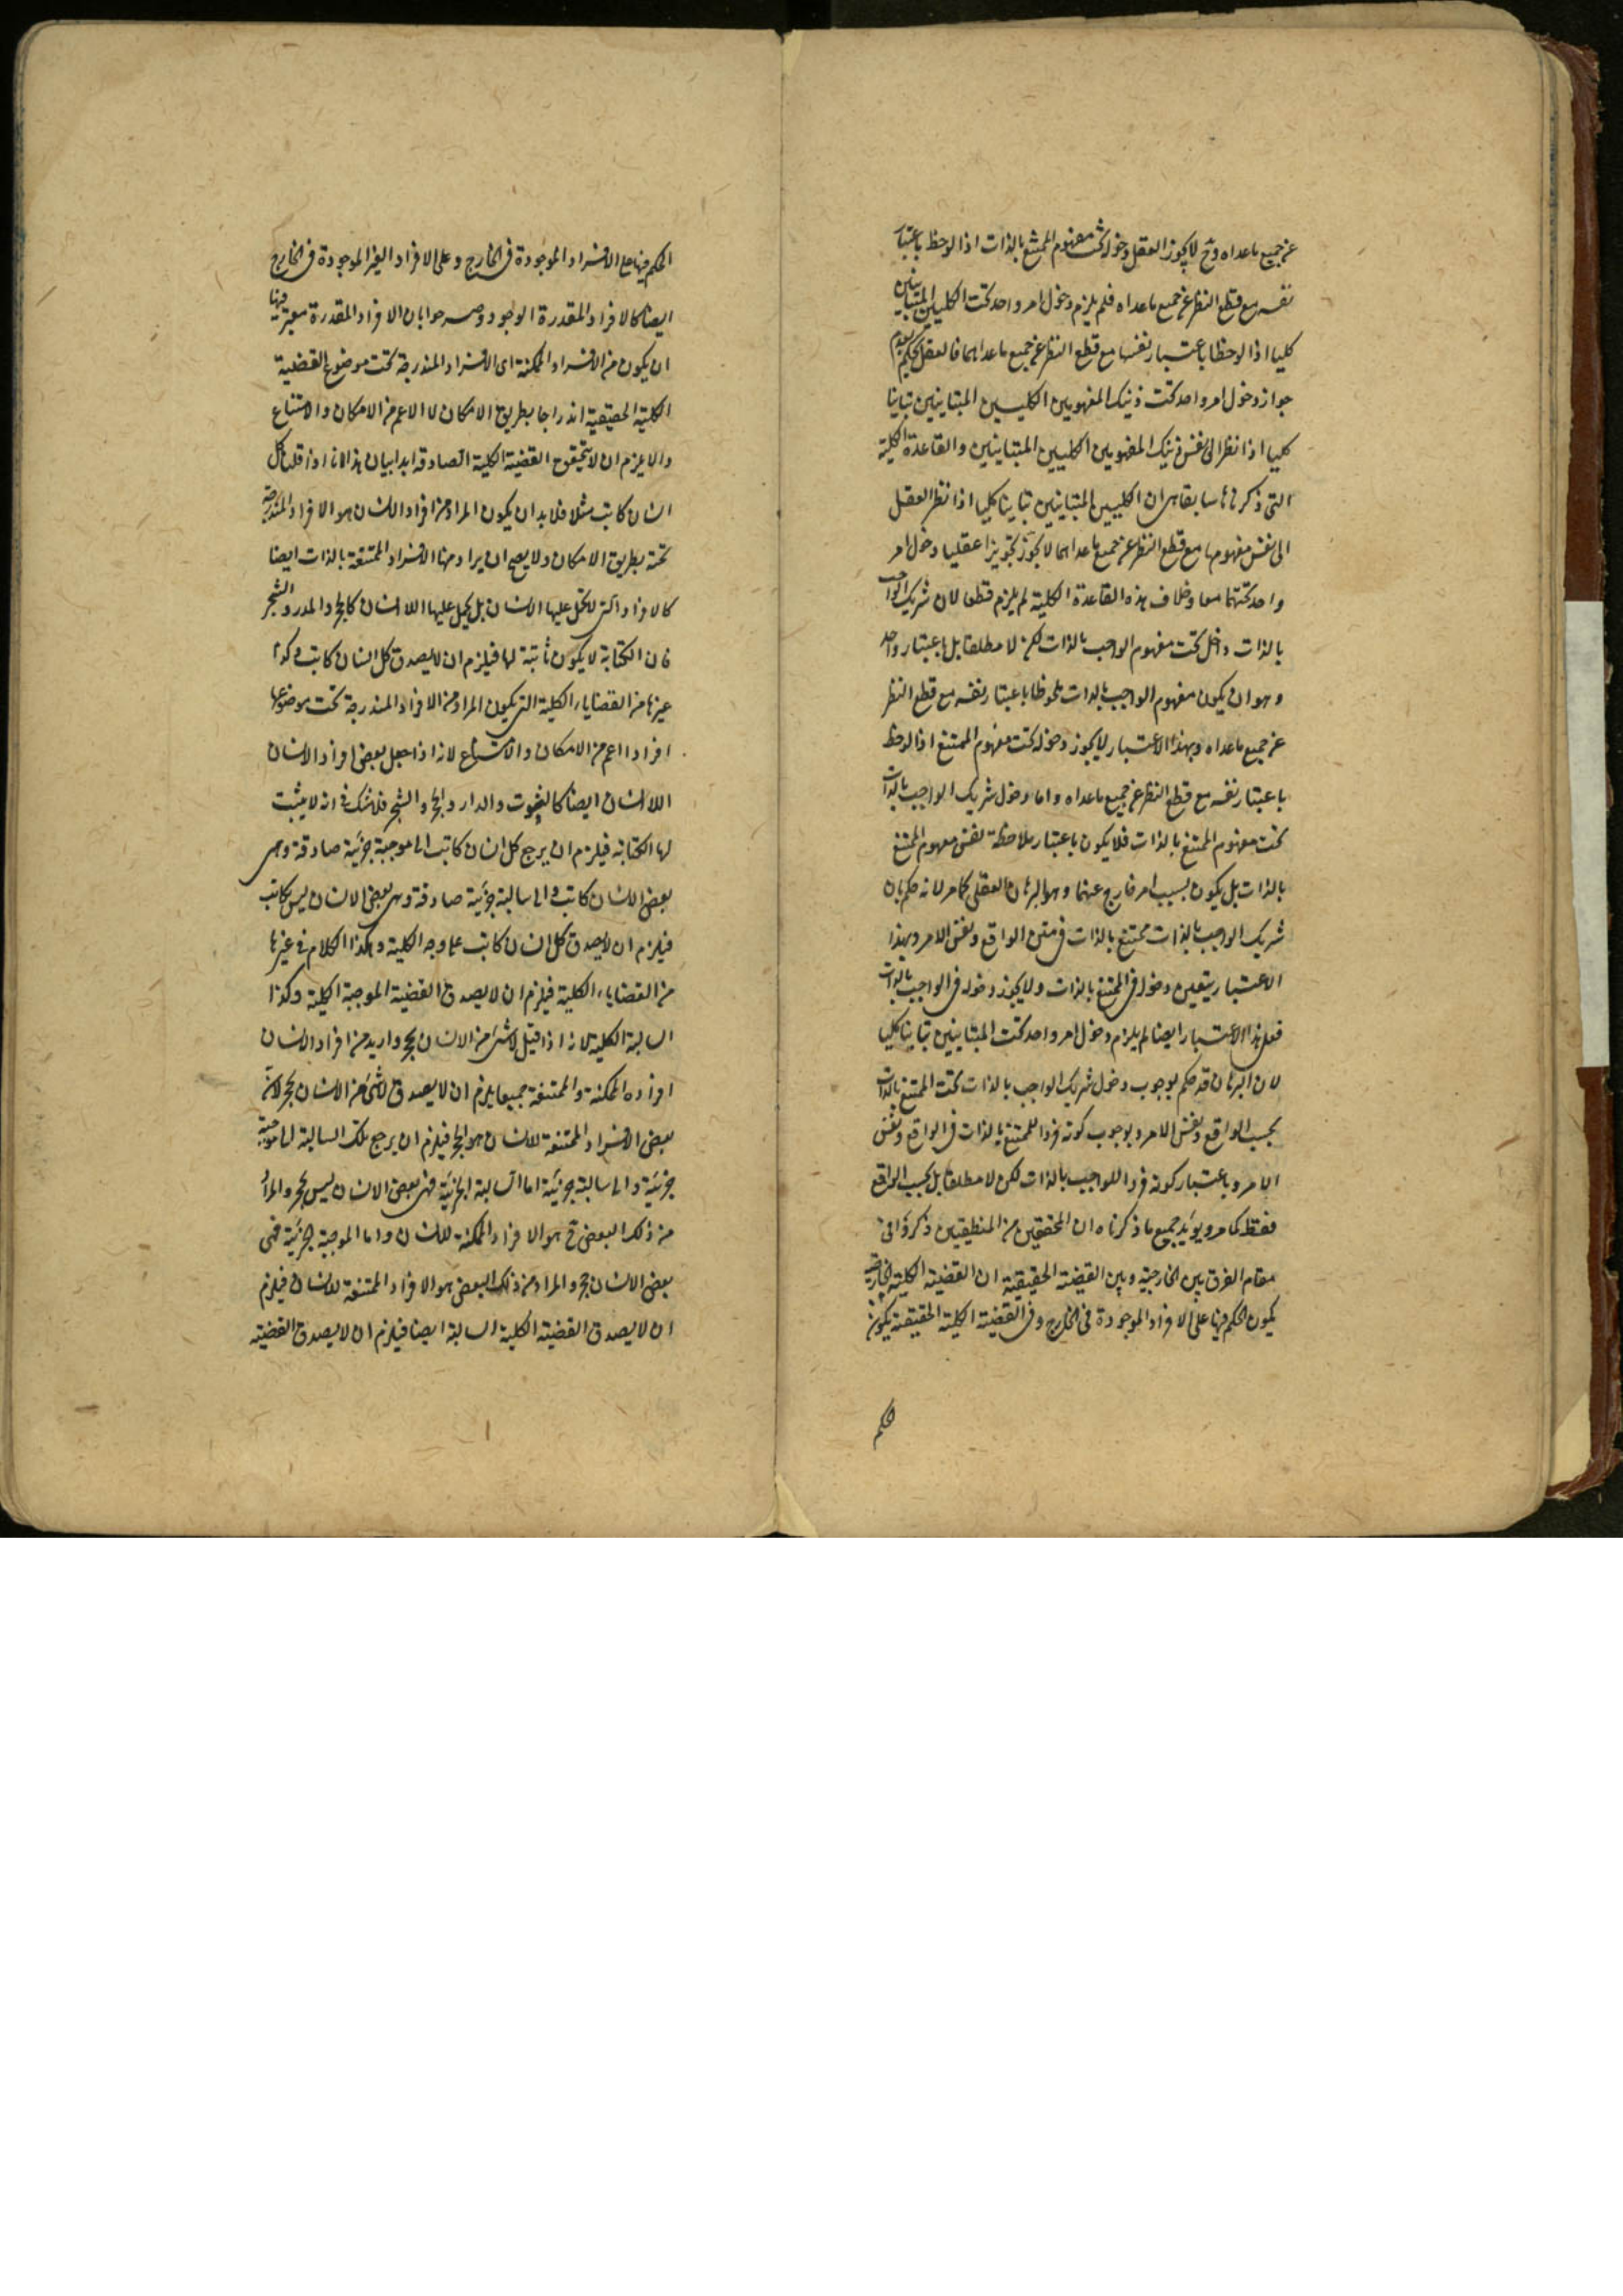 عن جميع ماعداه وح لا يجوز العقل دخوله تحت مفهوم الممتنع بالذات اذا لوحظ باعتبار
نفسه مع قطع النظر عن جميع ماعداه فلم يلزم دخول امر واحد تحت الكليين المتباينين
كليا اذا لوحظا باعتبار نفسهما مع قطع النظر عن جميع ماعداهما فالعقل يحكم بعدم
جواز دخول امر واحد تحت ذينك المفهومين الكليين المتباينين تباينا
كليا اذا نظر الى نفس ذينك المفهومين الكليين المتباينين والقاعدة الكلية
التى ذكرناها سابقا هى ان الكليين المتباينين تباينا كليا اذا نظر العقل
الى نفس مفهومهما مع قطع النظر عن جميع ماعداهما لا يجوز تجويزا عقليا دخول امر
واحد تحتهما معا وخلاف هذه القاعدة الكلية لم يلزم قطعا لان شريك الواجب
بالذات داخل تحت مفهوم الواجب بالذات لكن لا مطلقا بل باعتبار واحد
وهو ان يكون مفهوم الواجب بالذات ملحوظا باعتبار نفسه مع قطع النظر
عن جميع ماعداه وبهذا الاعتبار لا يجوز دخوله تحت مفهوم الممتنع اذا لوحظ
باعتبار نفسه مع قطع النظر عن جميع ماعداه واما دخول شريك الواجب بالذات
تحت مفهوم الممتنع بالذات فلا يكون باعتبار ملاحظة نفس مفهوم الممتنع
بالذات بل يكون بسبب امر خارج عنهما وهو البرهان العقلى كما مر لانه حكم بان
شريك الواجب بالذات ممتنع بالذات فى متن الواقع ونفس الامر وبهذا
الاعتبار يتعين دخوله فى الممتنع بالذات ولا يجوز دخوله فى الواجب بالذات
فعلى هذا الاعتبار ايضا لم يلزم دخول امر واحد تحت المتباينين تباينا كليا
لان البرهان قد حكم بوجوب دخول شريك الواجب بالذات تحت الممتنع بالذات
بحسب الواقع ونفس الامر وبوجوب كونه فردا للممتنع بالذات فى الواقع ونفس
الامر وباعتبار كونه فردا للواجب بالذات لكن لا مطلقا بل بحسب الواقع
فقط كما مر ويؤيد جميع ما ذكرناه ان المحققين من المنطقيين ذكروا فى
مقام الفرق بين الخارجية وبين القضية الحقيقية ان القضية الكلية الخارجية
يكون الحكم فيها على الافراد الموجودة فى الخارج وفى القضية الكلية الحقيقية يكون
الحكم
الحكم فيها على الافراد الموجودة فى الخارج وعلى الافراد الغير الموجودة فى الخارج
ايضا كالافراد المقدرة الوجود وصرحوا بان الافراد المقدرة معتبر فيها
ان يكون من الافراد الممكنة اى الافراد المندرجة تحت موضوع القضية
الكلية الحقيقية اندراجا بطريق الامكان لا الاعم من الامكان والامتناع
والا يلزم ان لا يتحقق القضية الكلية الصادقة ابدا بيان هذا انا اذا قلنا كل
انسان كاتب مثلا فلابد ان يكون المراد من افراد الانسان هو الافراد المندرجة
تحته بطريق الامكان ولا يصح ان يراد منها الافراد الممتنعة بالذات ايضا
كالافراد التى لا يحمل عليها الانسان بل يحمل عليها اللا انسان كالحجر والمدر والشجر
فان الكتابة لا يكون ثابتة لها فيلزم ان لا يصدق كل انسان كاتب وكذا
غيرها من القضايا الكلية التى يكون المراد من الافراد المندرجة تحت موضوعها
افرادا اعم من الامكان والامتناع لانه اذا جعل بعض افراد الانسان
اللا انسان ايضا والدار والحجر والشجر فلا شك فى انه لا يثبت
لها الكتابة فيلزم ان يرجع كل انسان كاتب الى موجبة جزئية صادقة وهى
بعض الانسان كاتب والى سالبة جزئية صادقة وهى بعض الانسان ليس بكاتب
فيلزم ان لا يصدق كل انسان كاتب على وجه الكلية وهكذا الكلام فى غيرها
من القضايا الكلية فيلزم ان لا يصدق القضية الموجبة الكلية وكذا
السالبة الكلية لانه اذا قيل لا شئ من الانسان بحجر واريد من افراد الانسان
افراده الممكنة والممتنعة جميعا يلزم ان لا يصدق لا شئ من الانسان بحجر لان
بعض الافراد الممتنعة للانسان هو الحجر فيلزم ان يرجع تلك السالبة الى موجبة
جزئية والى سالبة جزئية اما السالبة الجزئية فهى بعض الانسان ليس بحجر والمراد
من ذلك البعض ح هو الافراد الممكنة للانسان واما الموجبة الجزئية فهى
بعض الانسان حجر والمراد من ذلك البعض هو الافراد الممتنعة للانسان فيلزم
ان لا يصدق القضية الكلية السالبة ايضا فيلزم ان لا يصدق القضية